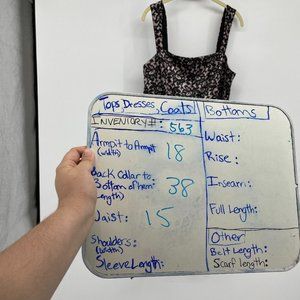 Tops, Dresses, Coats
INVENTORY #: 563
Armpit to Armpit 18
(width)
Back Collar to
Bottom of hem: 38
(Length)
Waist: 15
Shoulders:
(width)
Sleeve Length:
Bottoms
Waist:
Rise:
Inseam:
Full Length:
Other
Belt Length:
Scarf Length: